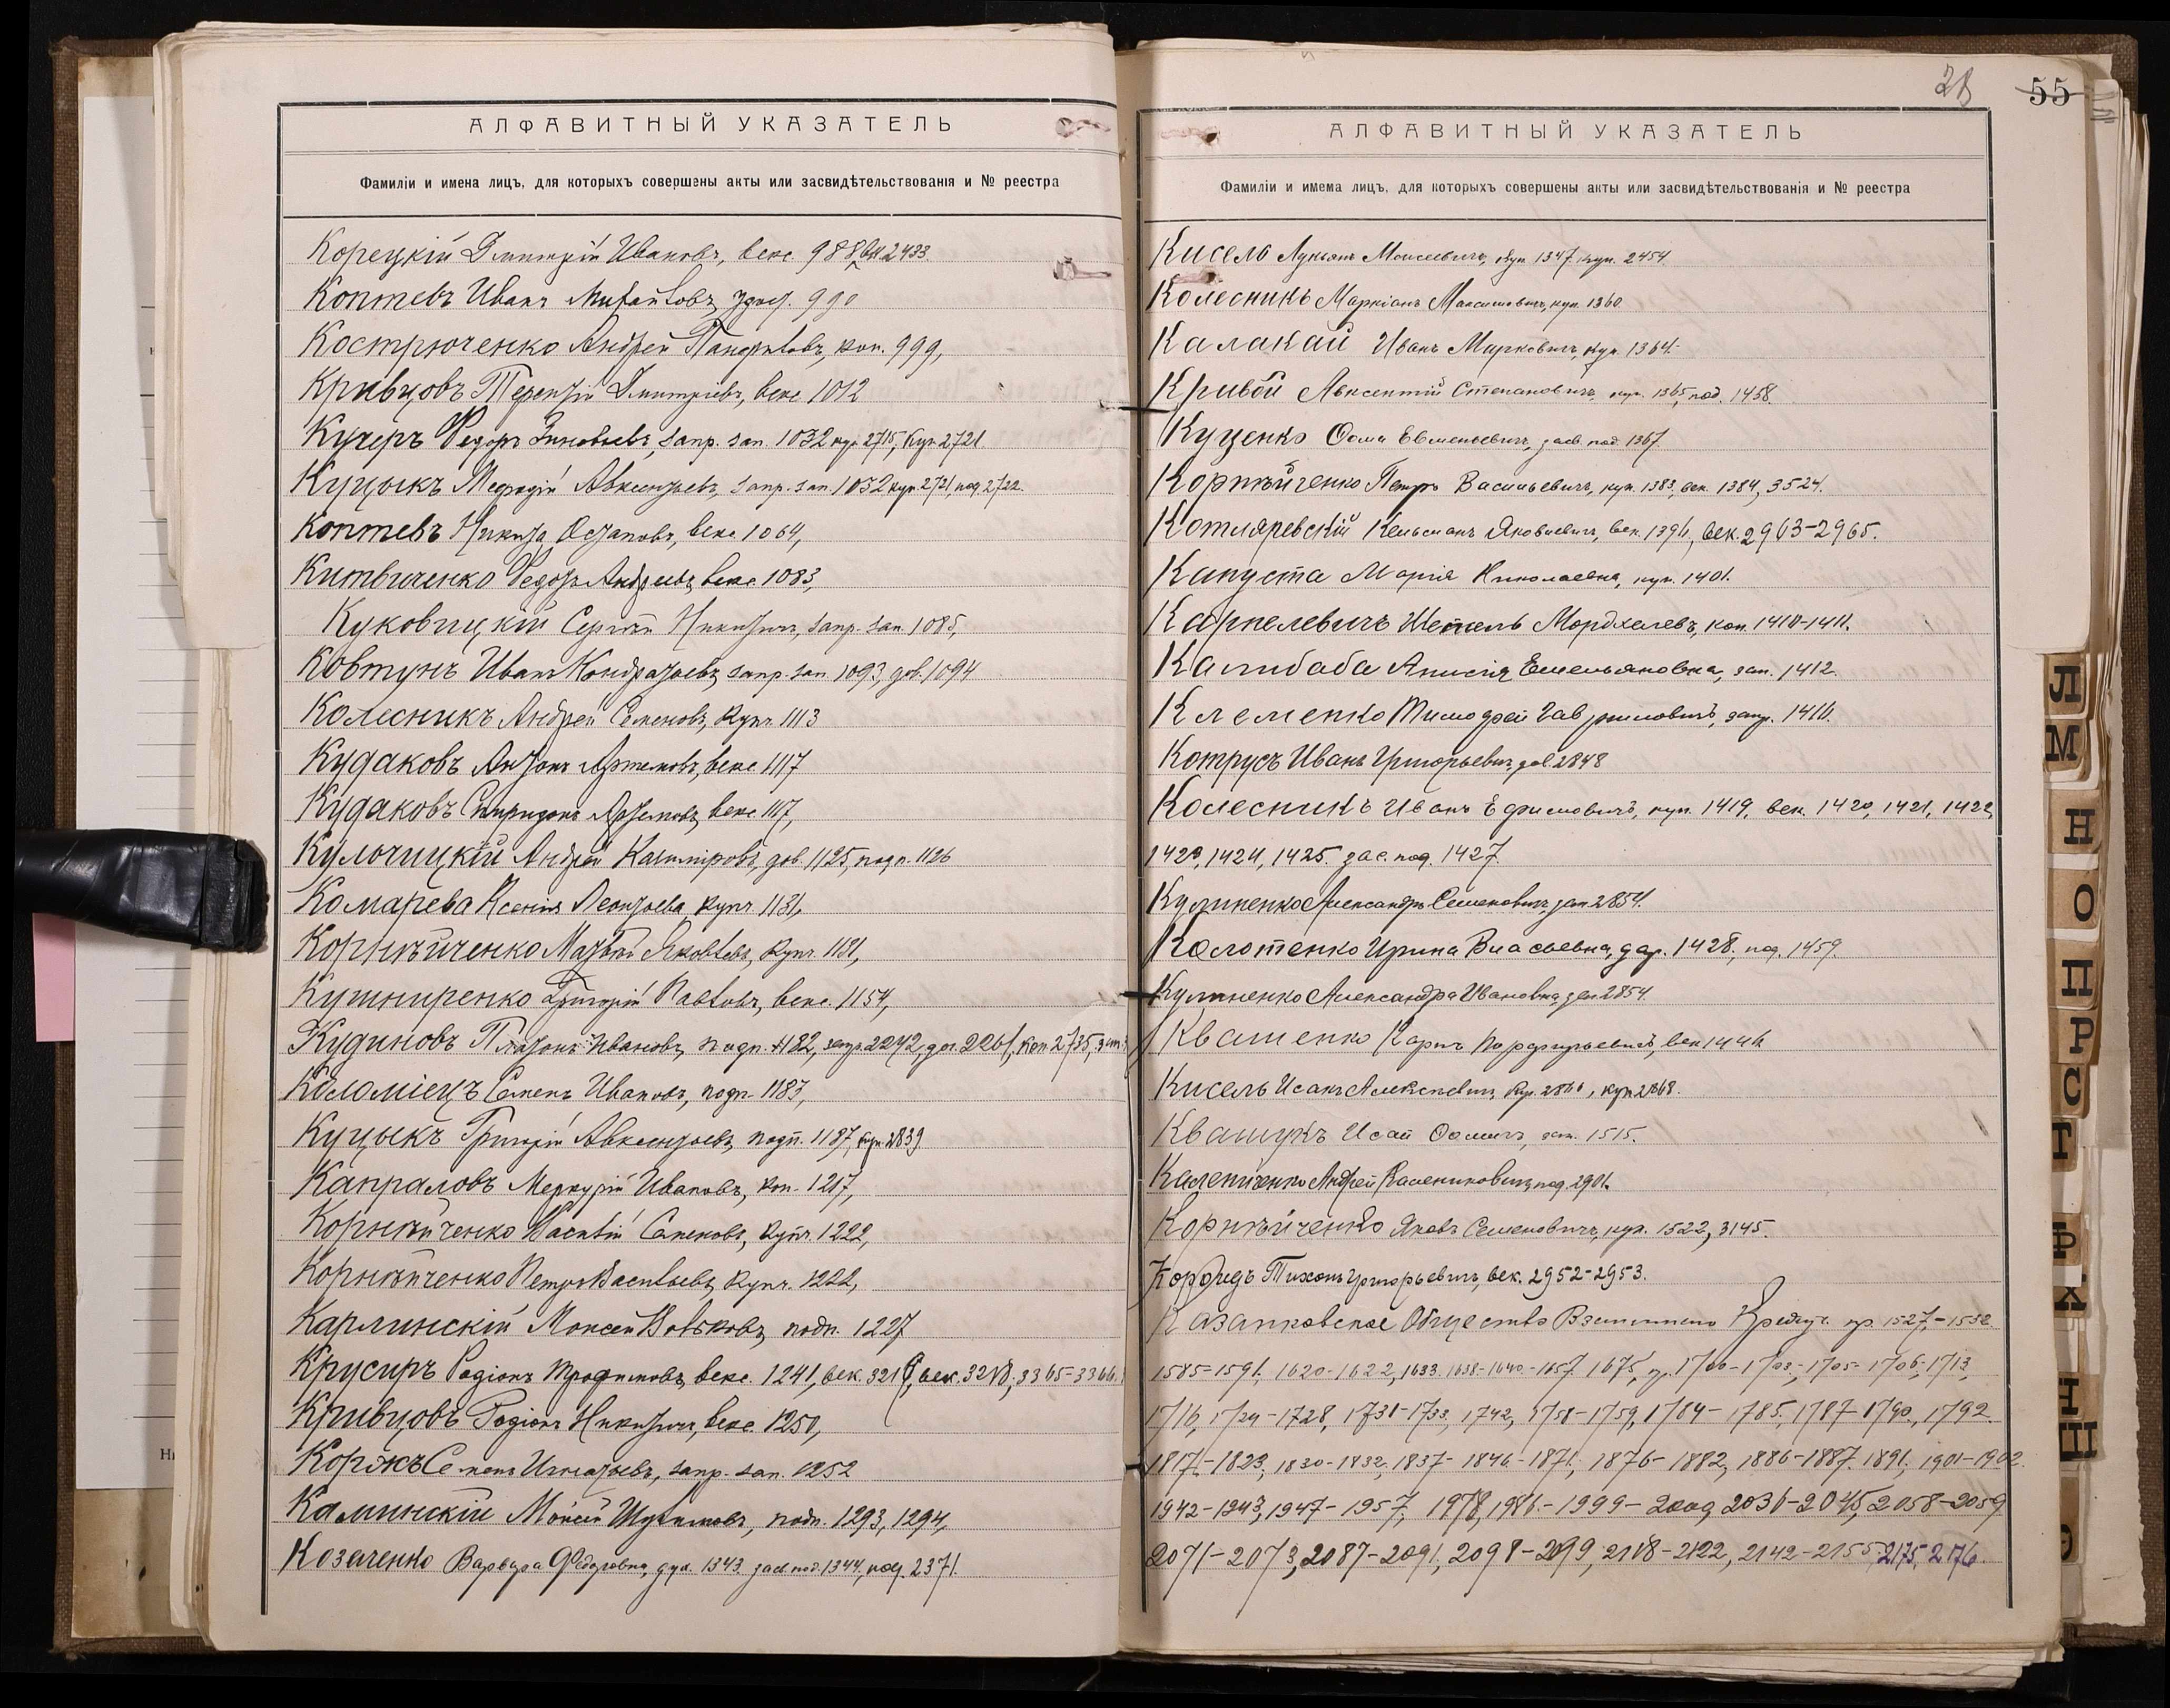 АЛФАВИТНЫЙ УКАЗАТЕЛЬ
Фамиліи и имена лицъ, для которыхъ совершены акты или засвидѣтельствованія и № реестра
Корецкій Дмитрій Ивановъ, векс. 988, 2433
Коптевъ Иванъ Михайловъ, 990
Кострюченко Андрей коп. 999,
Кривцовъ Терентій Дмитріевъ, векс. 1012
Кучеръ Федоръ Зиновьевъ, запр. зап. 1032 куп. 2715, куп. 2721
Куцыкъ Мефодій Авксентьевъ, запр. зап. 1032 куп. 2721, под. 2722.
Коптевъ Никита Остаповъ, векс. 1064,
Китвиченко Федоръ Андреевъ, векс. 1083,
Куковицкій Сергѣй Никитичъ, запр. зап. 1085,
Ковтунъ Иванъ Кондратьевъ, запр. зап. 1093, дов. 1094
Колесникъ Андрей Семеновъ, купч. 1113
Кудаковъ Антонъ Артемовъ, векс. 1117
Кудаковъ Спиридонъ Артемовъ, векс. 1117,
Кульчицкій Андрей Казиміровъ, дов. 1125, подп. 1126
Комарева Ксенія Леонтьева, купч. 1131,
Корнѣйченко Матвѣй Яковлевъ, купч. 1131,
Кушниренко Григорій Павловъ, векс. 1154,
Кудиновъ Платонъ Ивановъ, подп. 1182, 2242, 2261, коп. 2735,
Коломіецъ Семенъ Ивановъ, подп. 1183,
Куцыкъ Григорій Авксентьевъ, подп. 1187, куп. 2839
Капраловъ Меркурій Ивановъ, коп. 1217,
Корнѣйченко Василій Семеновъ, купч. 1222,
Корнѣйченко Петръ Васильевъ, купч. 1222,
Карлинскій Моисей Вольковъ, подп. 1227
Крусиръ Родіонъ Трофимовъ, векс. 1241, век. 3365-3366.
Кривцовъ Родіонъ Никитичъ, векс. 1250,
Коржъ Семенъ Игнатьевъ, запр. зап. 1252
Калинскій подп. 1293, 1294,
Козаченко Варвара Федоровна, дух. 1343. зас. под. 1344, под. 2371.
28
55
АЛФАВИТНЫЙ УКАЗАТЕЛЬ
Фамиліи и имема лицъ, для которыхъ совершены акты или засвидѣтельствованія и № реестра
Кисель Лукьянъ Моисеевичъ, куп. 1347. куп. 2454.
Колесникъ Маркіанъ Максимовичъ, куп. 1360.
Калакай Иванъ Марковичъ, куп. 1364.
Кривой Авксентій Степановичъ, куп. 1365, под. 1458.
Куценко Ѳома Евменьевичъ, засв. под. 1367.
Корнѣйченко Петръ Васильевичъ, куп. 1383, век. 1384, 3524.
Котляревскій Кельманъ Яковлевичъ, век. 1396, век. 2963-2965.
Капуста Марія Николаевна, куп. 1401.
Карпелевичъ Шепель Мордхелевъ, коп. 1410-1411.
Калибаба Анисія Емельяновна, зап. 1412.
Клеменко Тимофей Гавриловичъ, запр. 1416.
Котрусъ Иванъ Григорьевичъ, дов. 2848
Колесникъ Иванъ Ефимовичъ, куп. 1419, век. 1420, 1421, 1422,
1423, 1424, 1425. зас. под. 1427.
Кулиненко Александръ Семеновичъ, зап. 2854.
Колотенко Ирина Власьевна, дар. 1428, под. 1459.
Кулиненко Александра Ивановна, зап. 2854.
Квашенко Карпъ Порфирьевичъ, век. 1446
Кисель Исакъ Алексѣевичъ, куп. 2868.
Квашукъ Исай Ѳомичъ, зап. 1515.
Калениченко Андрей Калениковичъ, под. 2901.
Корнѣйченко Яковъ Семеновичъ, куп. 1522, 3145.
Тихонъ Григорьевичъ, век. 2952-2953.
Казанковское Общество Взаимнаго Кредита пр. 1527-1552.
1585-1591, 1620-1622, 1633, 1638-1640-1657, 1675, пр. 1700-1703, 1705-1706, 1713,
1716, 1724-1728, 1731-1733, 1742, 1758-1759, 1784-1785, 1787-1790, 1792.
1817-1823, 1830-1832, 1837-1846-1871, 1876-1882, 1886-1887, 1891, 1901-1902.
1942-1943, 1947-1957, 1978, 1986-1999-2009, 2036-2045, 2058-2059
2071-2073, 2087-2091, 2098-2099, 2118-2122, 2142-2155, 2175, 2176
Л
М
Н
О
П
Р
С
Т
Ф
Х
Э